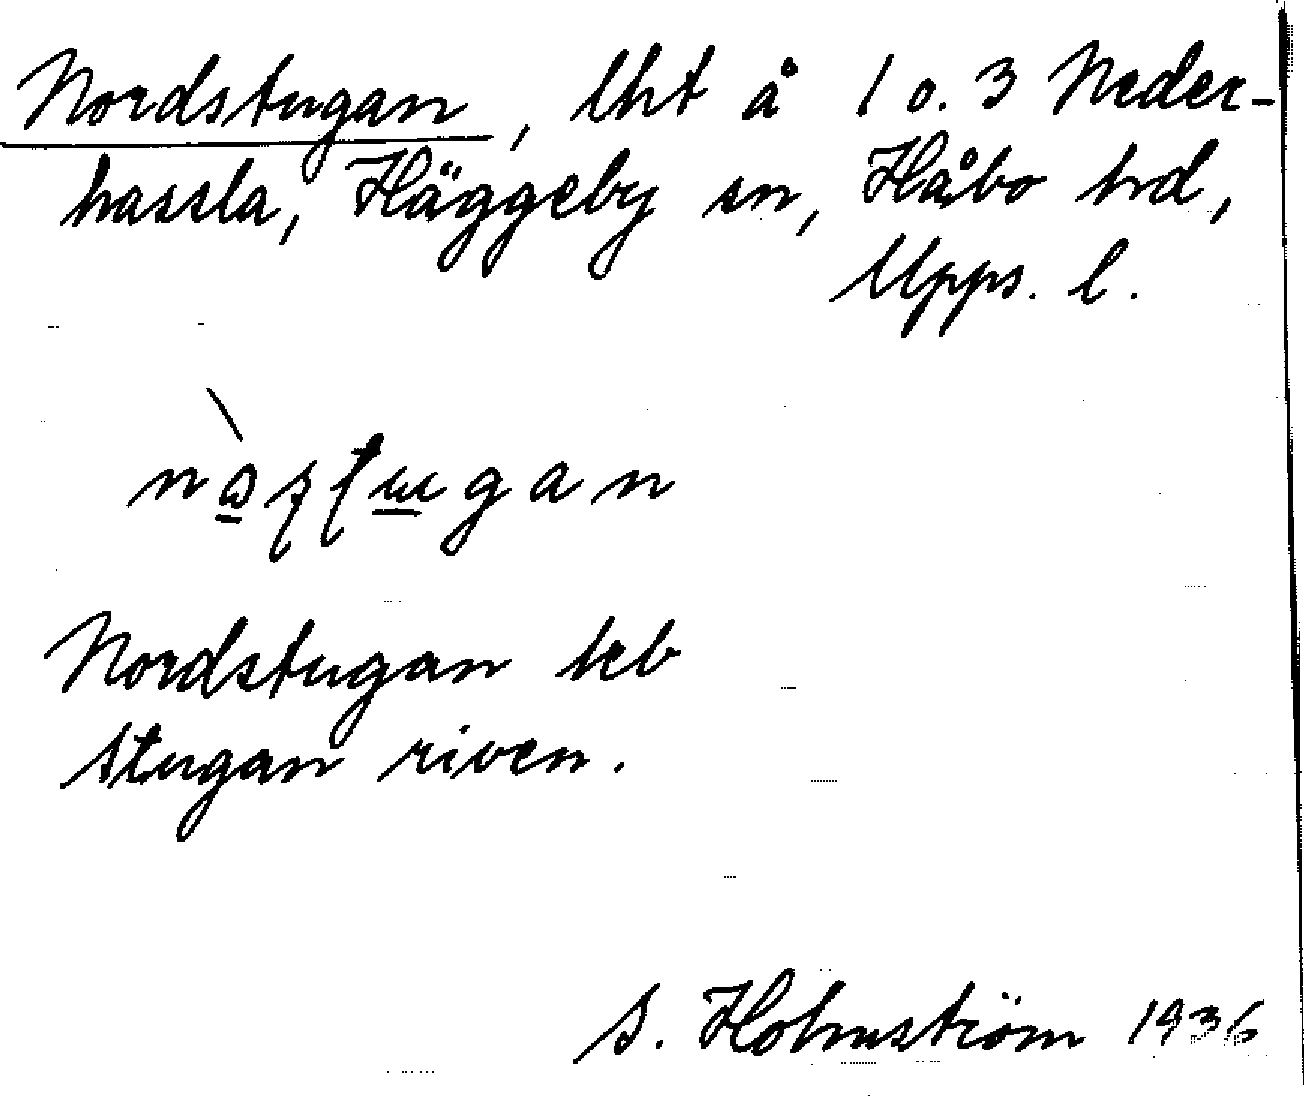 Nordstugan, lht å 1 o. 3 Neder-
hassla, Häggeby sn, Håbo hrd,
Upps. l.
Nordstugan teb
Stugan riven.
S. Holmström 1936